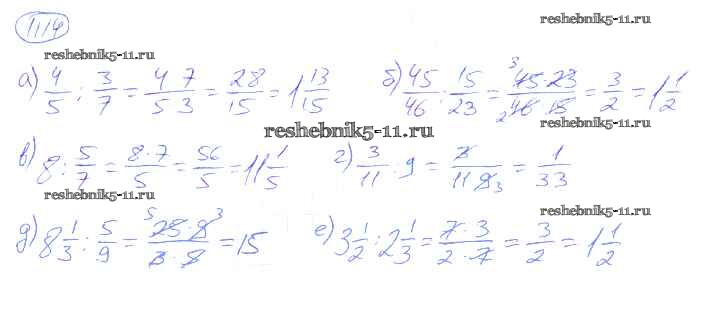 1114
reshebnik5-11.ru
reshebnik5-11.ru
а) 4/5 : 3/7 = 4 7/5 3 = 28/15 = 1 13/15 б) 45/46 : 15/23 = 45·23/46·15 = 3/2 = 1 1/2
reshebnik5-11.ru
reshebnik5-11.ru
в) 8 : 5/7 = 8·7/5 = 56/5 = 11 1/5 г) 3/11 : 9 = 3/11 9 3 = 1/33
reshebnik5-11.ru
reshebnik5-11.ru
д) 8 1/3 : 5/9 = = 15 е) 3 1/2 : 2 1/3 = 7·3/2·7 = 3/2 = 1 1/2